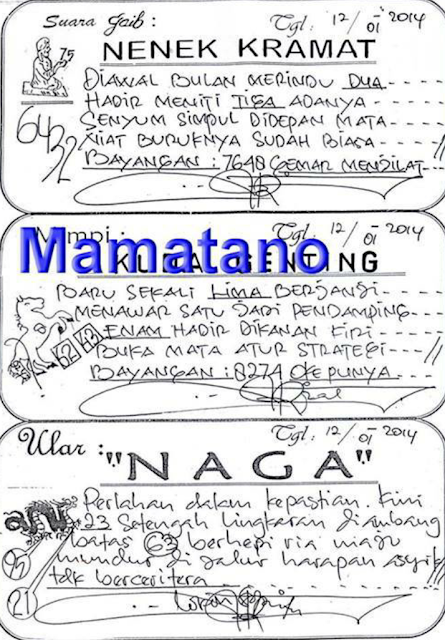 Suara Gaib : Tgl, 12/01 2014
NENEK KRAMAT
75
DIAWAL BULAN MERINDU DUA
HADIR MENITI TIGA ADANYA
SENYUM SIMPUL DIDEPAN MATA
NIAT BURUKNYA SUDAH BIASA
BAYANGAN : 7648 GEMAR MENSILAT
6432
Mimpi : Tgl, 12/01 2014
Mamatano
KUDA GENTING
BARU SEKALI LIMA BERJANJI
MENAWAR SATU JADI PENDAMPING
ENAM HADIR DIKANAN KIRI
BUKA MATA ATUR STRATEGI
BAYANGAN : 8274 OKEPUNYA
62 43
Ular : Tgl, 12/01 2014
"NAGA"
Perlahan dalam kepastian kini
23 Setengah lingkaran diambang
batas 63 berhepi ria maju
mundur di jalur harapan asyik
tdk berceritera
95
21